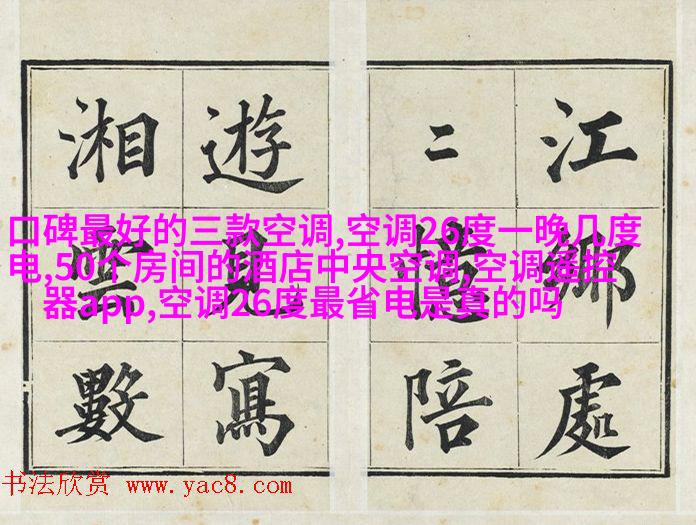 江鄉處
二憶陪
遊見寫
湘雲數
口碑最好的三款空调,空调26度一晚几度
电,50个房间的酒店中央空调,空调遥控
器app,空调26度最省电是真的吗
书法欣赏 www.yac8.com